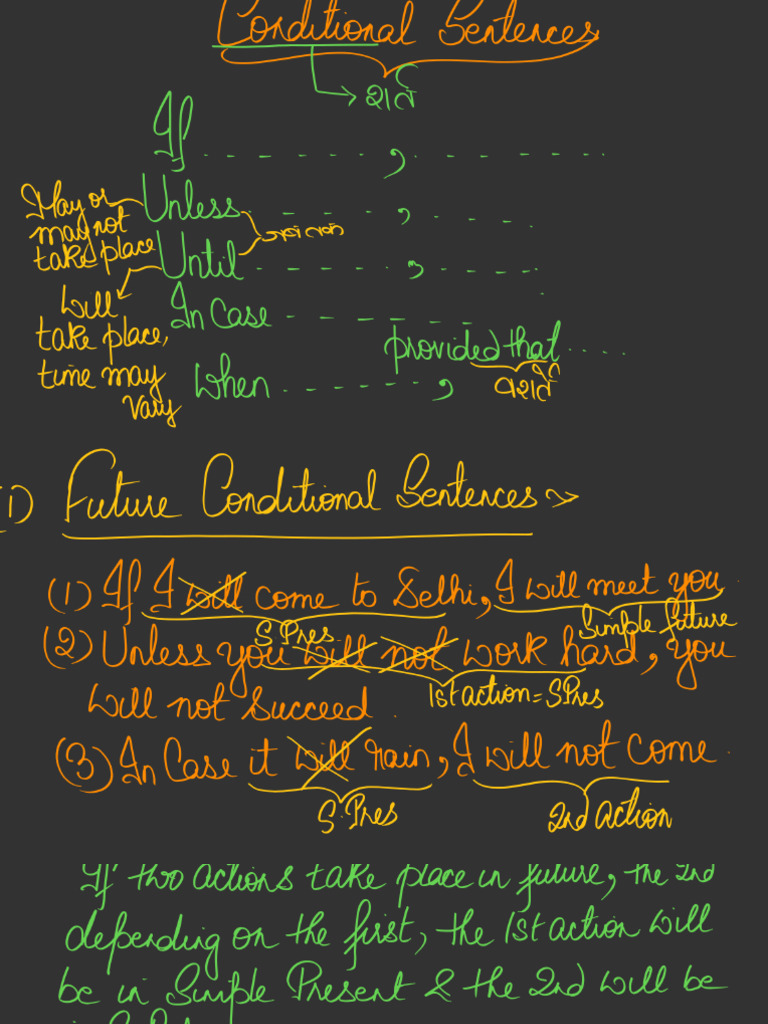 Conditional Sentences
शर्त
If - - - - - - - , - - - - - - -
May or
may not
take place
Unless - - - - - , - - - - -
Until - - - - - - , - - - - -
जब तक
Will
take place,
time may
Vary
In Case - - - - - - -
provided that ....
बशर्ते
When - - - - - - - ,
1) Future Conditional Sentences :-
(1) If I will come to Delhi, I will meet you
S Pres
Simple future
(2) Unless you will not work hard, you
1st action = S Pres
will not Succeed.
(3) In Case it will rain, I will not come.
S. Pres
2nd action
If two actions take place in future, the 2nd
depending on the first, the 1st action will
be in Simple Present & the 2nd will be